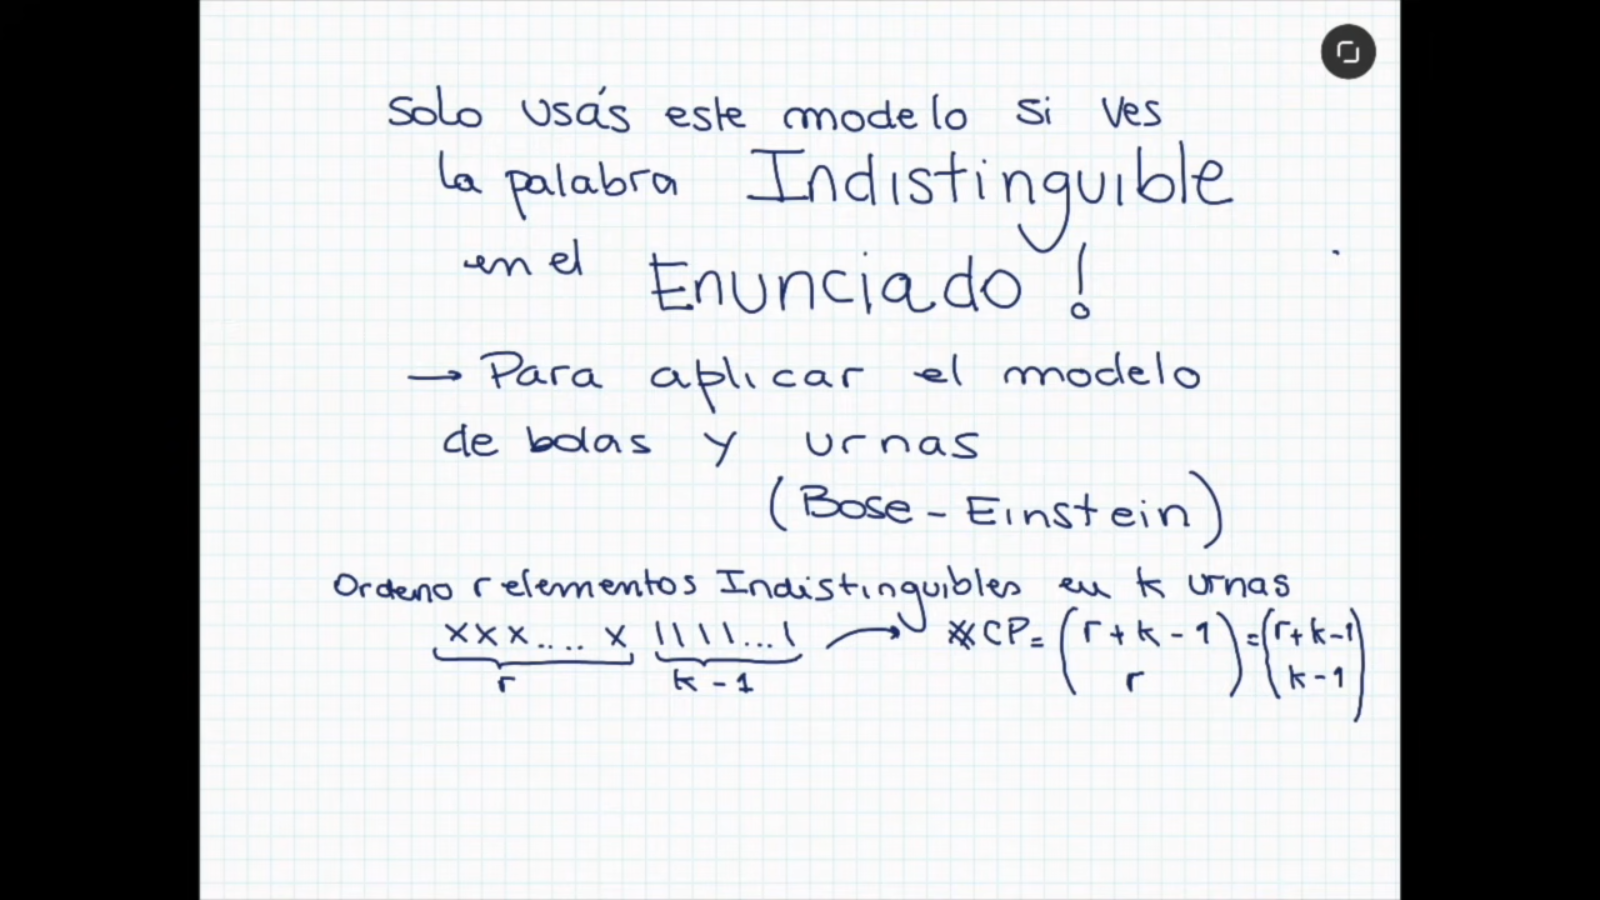 Solo usás este modelo si ves
la palabra Indistinguible
en el Enunciado!
→ Para aplicar el modelo
de bolas y urnas
(Bose-Einstein)
Ordeno r elementos Indistinguibles en k urnas
xxx.... x ||||...| → #CP= (r+k-1 r) = (r+k-1 k-1)
r k-1